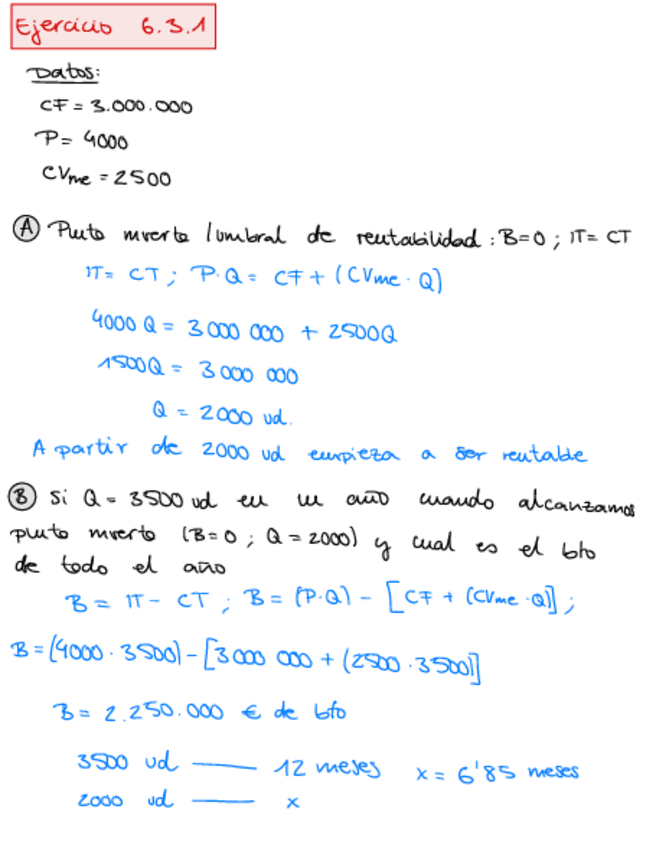 Ejercicio 6.3.1
Datos:
CF = 3.000.000
P = 4000
CVme = 2500
A Pluto muerto / umbral de rentabilidad : B=0 ; IT= CT
IT= CT ; P.Q = CF + (CVme . Q)
4000 Q = 3 000 000 + 2500Q
1500Q = 3 000 000
Q = 2000 ud.
A partir de 2000 ud empieza a ser rentable
B Si Q = 3500 ud en un año cuando alcanzamos
pluto muerto (B=0 ; Q = 2000) y cual es el bto
de todo el año
B = IT - CT ; B = (P.Q) - [CF + (CVme . Q)] ;
B = (4000 . 3500) - [3 000 000 + (2500 . 3500)]
B = 2.250.000 € de bto
3500 ud —— 12 meses x = 6'85 meses
2000 ud —— x